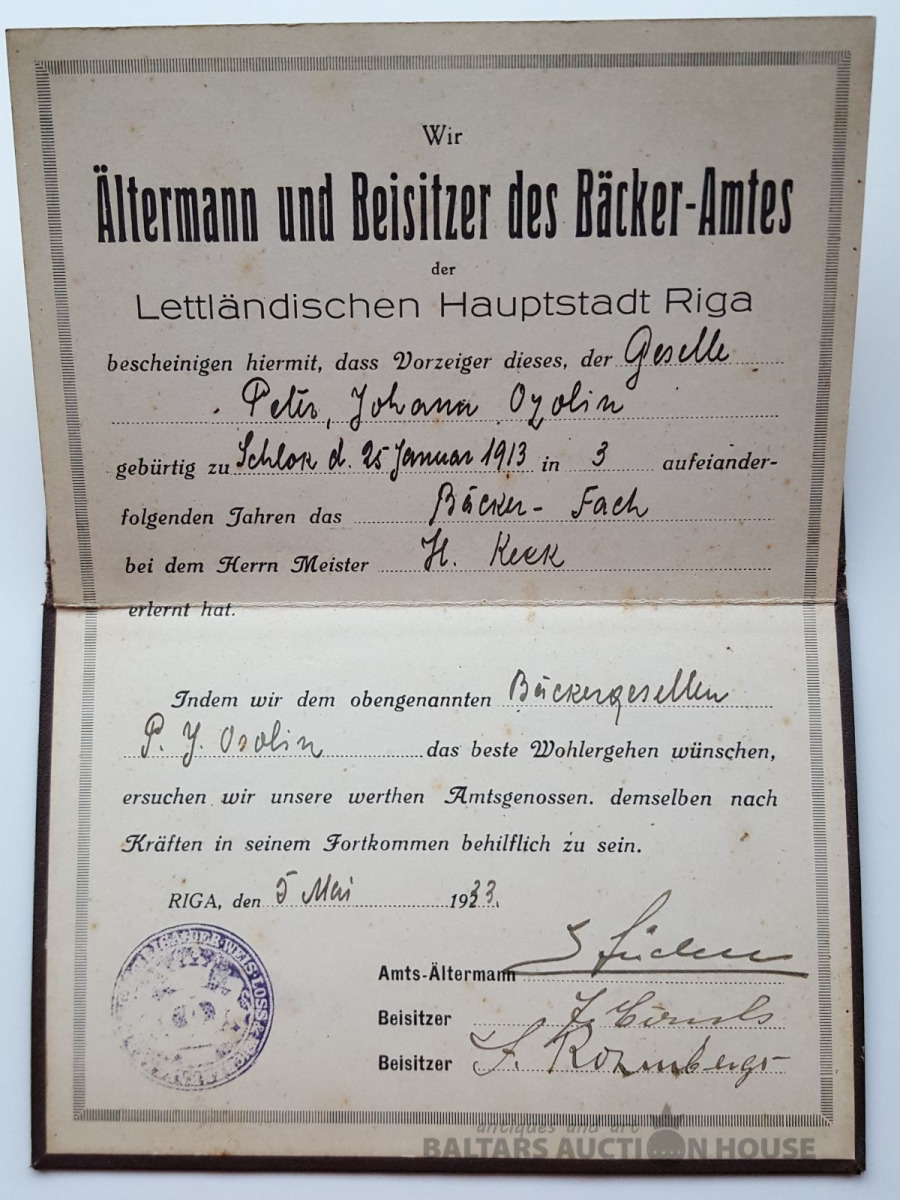 Wir
Ältermann und Beisitzer des Bäcker-Amtes
der
Lettländischen Hauptstadt Riga
bescheinigen hiermit, dass Vorzeiger dieses, der Geselle
Peter, Johann Ozolin
gebürtig zu Schlok d. 25 Januar 1913 in 3 aufeiander-
folgenden Jahren das Bäcker- Fach
bei dem Herrn Meister H. Keck
erlernt hat.
Indem wir dem obengenannten Bäckergesellen
P. J. Osolin das beste Wohlergehen wünschen,
ersuchen wir unsere werthen Amtsgenossen. demselben nach
Kräften in seinem Fortkommen behilflich zu sein.
RIGA, den 5 Mai 1933.
Amts-Ältermann
Beisitzer
Beisitzer
antiques and art
BALTARS AUCTION HOUSE